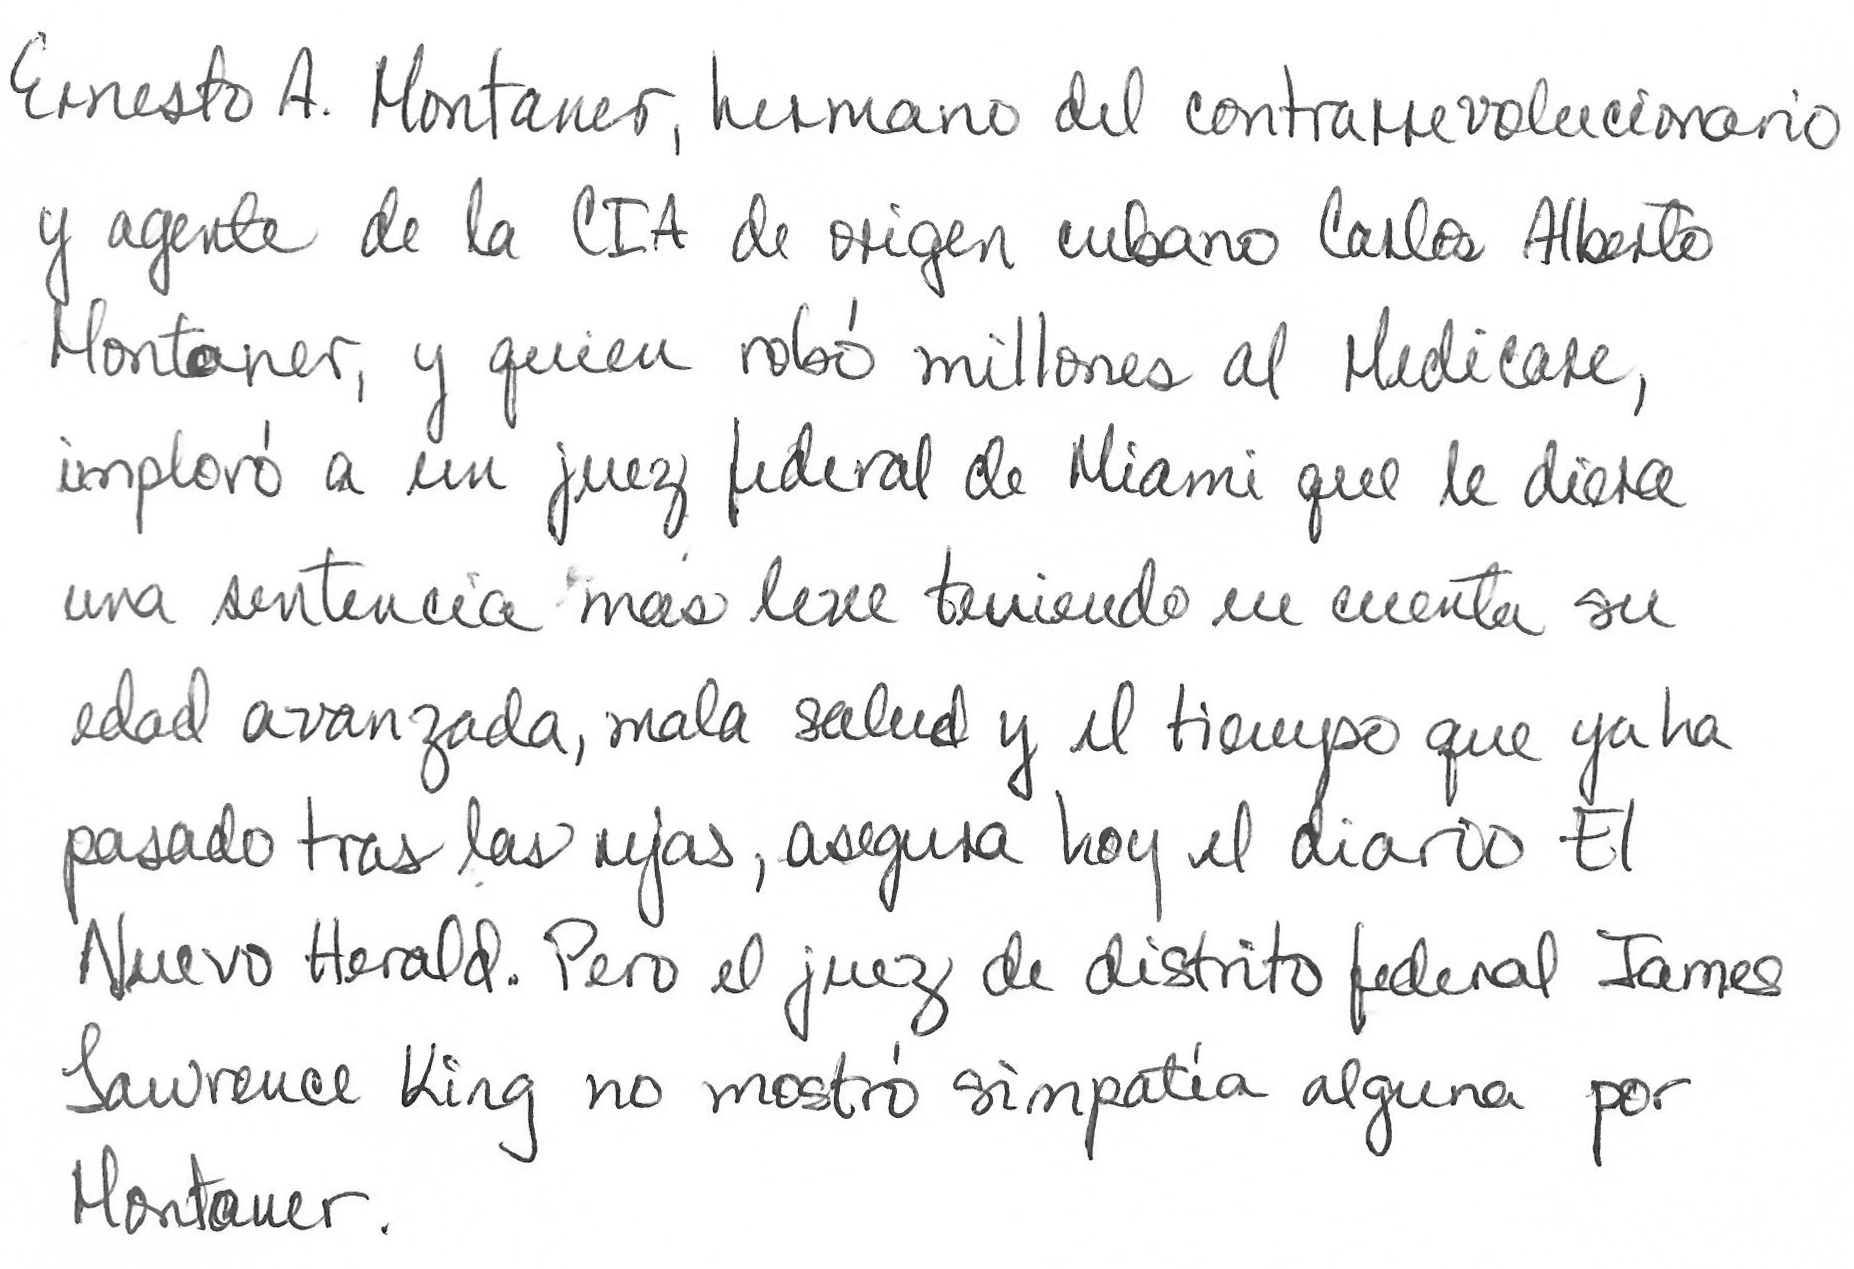 Ernesto A. Montaner, hermano del contrarrevolucionario
y agente de la CIA de origen cubano Carlos Alberto
Montaner, y quien robó millones al Medicare,
imploró a un juez federal de Miami que le diera
una sentencia más leve teniendo en cuenta su
edad avanzada, mala salud y el tiempo que ya ha
pasado tras las rejas, asegura hoy el diario El
Nuevo Herald. Pero el juez de distrito federal James
Lawrence King no mostró simpatía alguna por
Montaner.